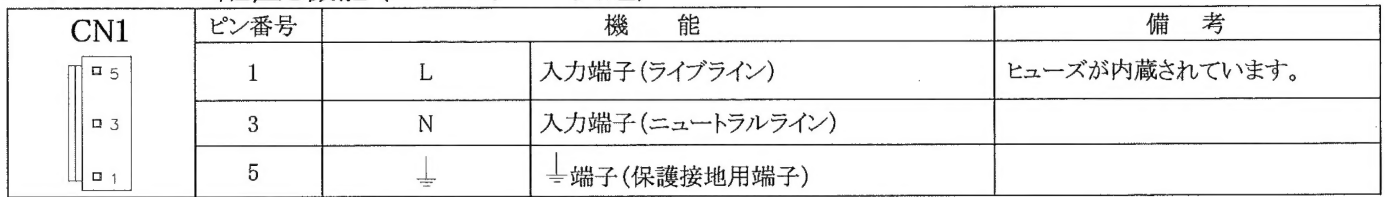 CN1 ピン番号 機 能 備 考
5 1 L 入力端子(ライブライン) ヒューズが内蔵されています。
3 3 N 入力端子(ニュートラルライン)
1 5 ⏚ ⏚端子(保護接地用端子)